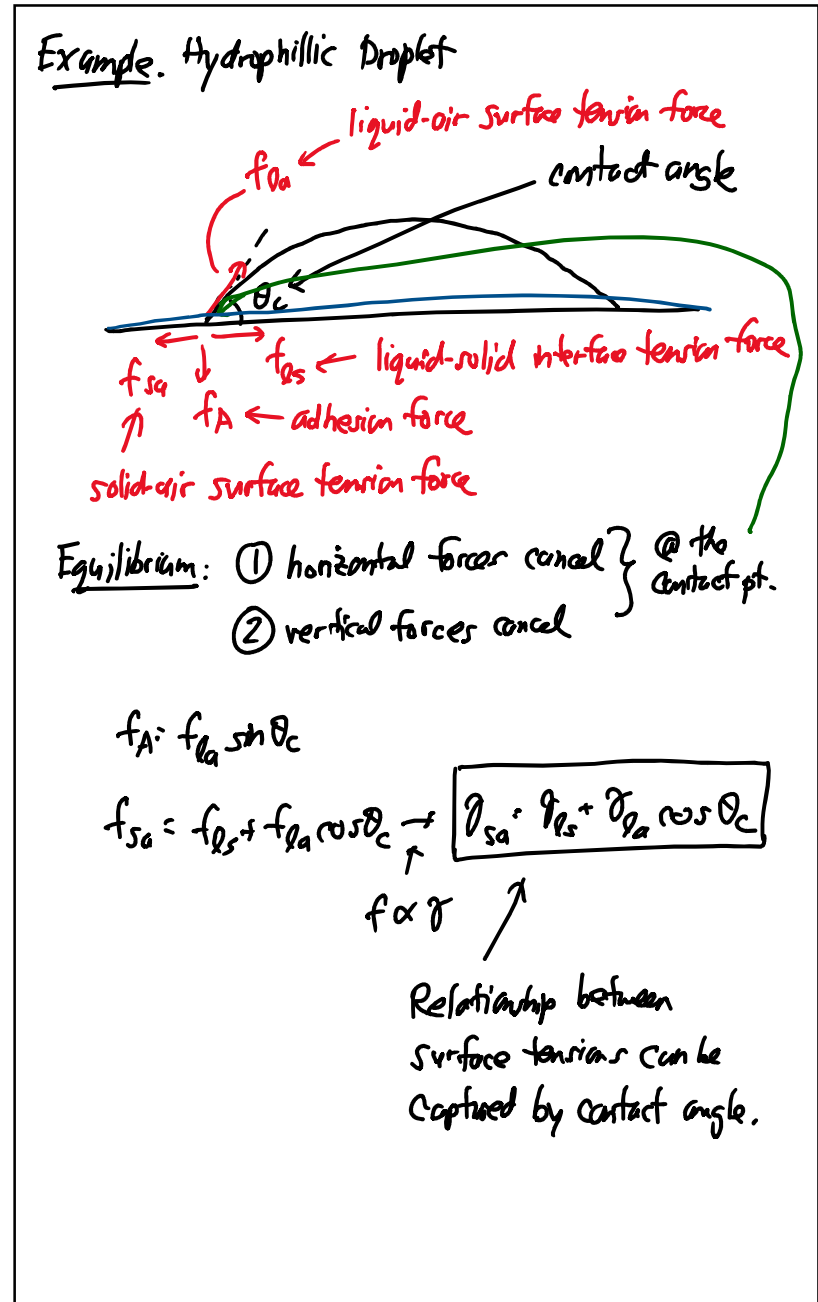 Example. Hydrophillic Droplet
liquid-air surface tension force
f_la
contact angle
θ_c
f_sa
f_ls
liquid-solid interface tension force
f_A
adhesion force
solid-air surface tension force
Equilibrium: ① horizontal forces cancel
@ the
contact pt.
② vertical forces cancel
f_A = f_la sin θ_c
f_sa = f_ls + f_la cos θ_c → γ_sa = γ_ls + γ_la cos θ_c
f ∝ γ
Relationship between
surface tensions can be
captured by contact angle.